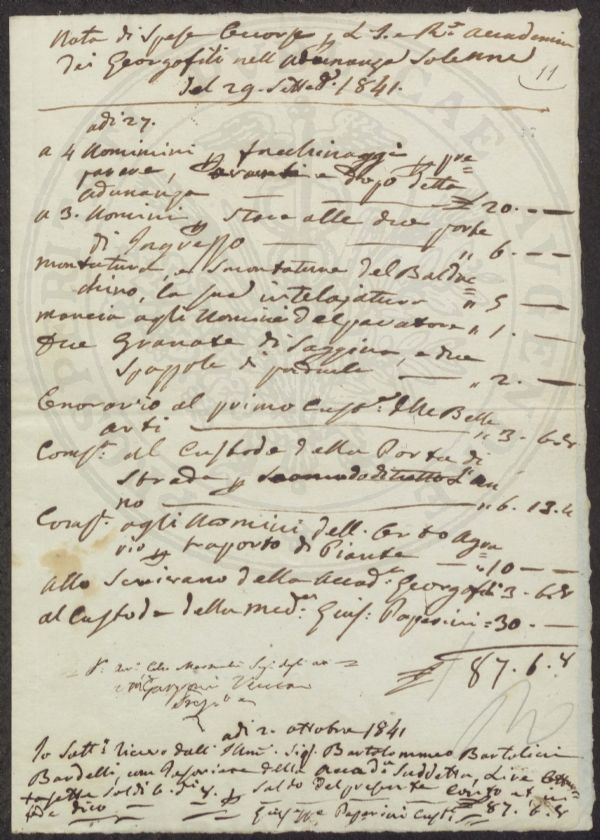 Nota di Spese Occorse p L'I. e R.ᵉ Accademia
dei Georgofili nell'adunanza Solenne
del 29. Sett.ᵉ 1841.
11
adi 27.
a 4 Uomini p facchinaggi p pre=
parare, avanti e dopo detta
adunanza — — £ 20. — —
a 3. Uomini p stare alle due porte
di Ingresso — — " 6. — —
montatura, e smontatura del Baldac=
chino, la sua intelajatura " 5 — —
mancia agli Uomini del paratore " 1. — —
Due Granate di Saggina, e due
Spazzole di padule — " 2. — —
Onorario al primo Cust.ᵉ delle Belle
arti — " 3. 6. 8
Comp.ᵉ al Custode della Porta di
Strada p l'an
no — " 6. 13. 4
Comp.ᵉ agli Uomini dell'Orto Agra=
rio p traporto di Piante — " 10 — —
Allo Scrivano della Accad.ᵃ Georgofili 3. 6. 8
al Custode della med.ᵃ Gius.ᵉ Paperini = 30. —
£ 87. 6. 8
adi 2. ottobre 1841
Io Sott.ᵒ ricevo dall' Sig.ʳ Bartolommeo Bartolini
Bardelli, com Tesoriere della accad.ᵃ Suddetta, Lire Ottan
tasette Soldi 6. d. 8. p Saldo del presente conto et in
fede dico — — £ 87. 6. 8
Giuseppe Paperini Cust.ᵉ